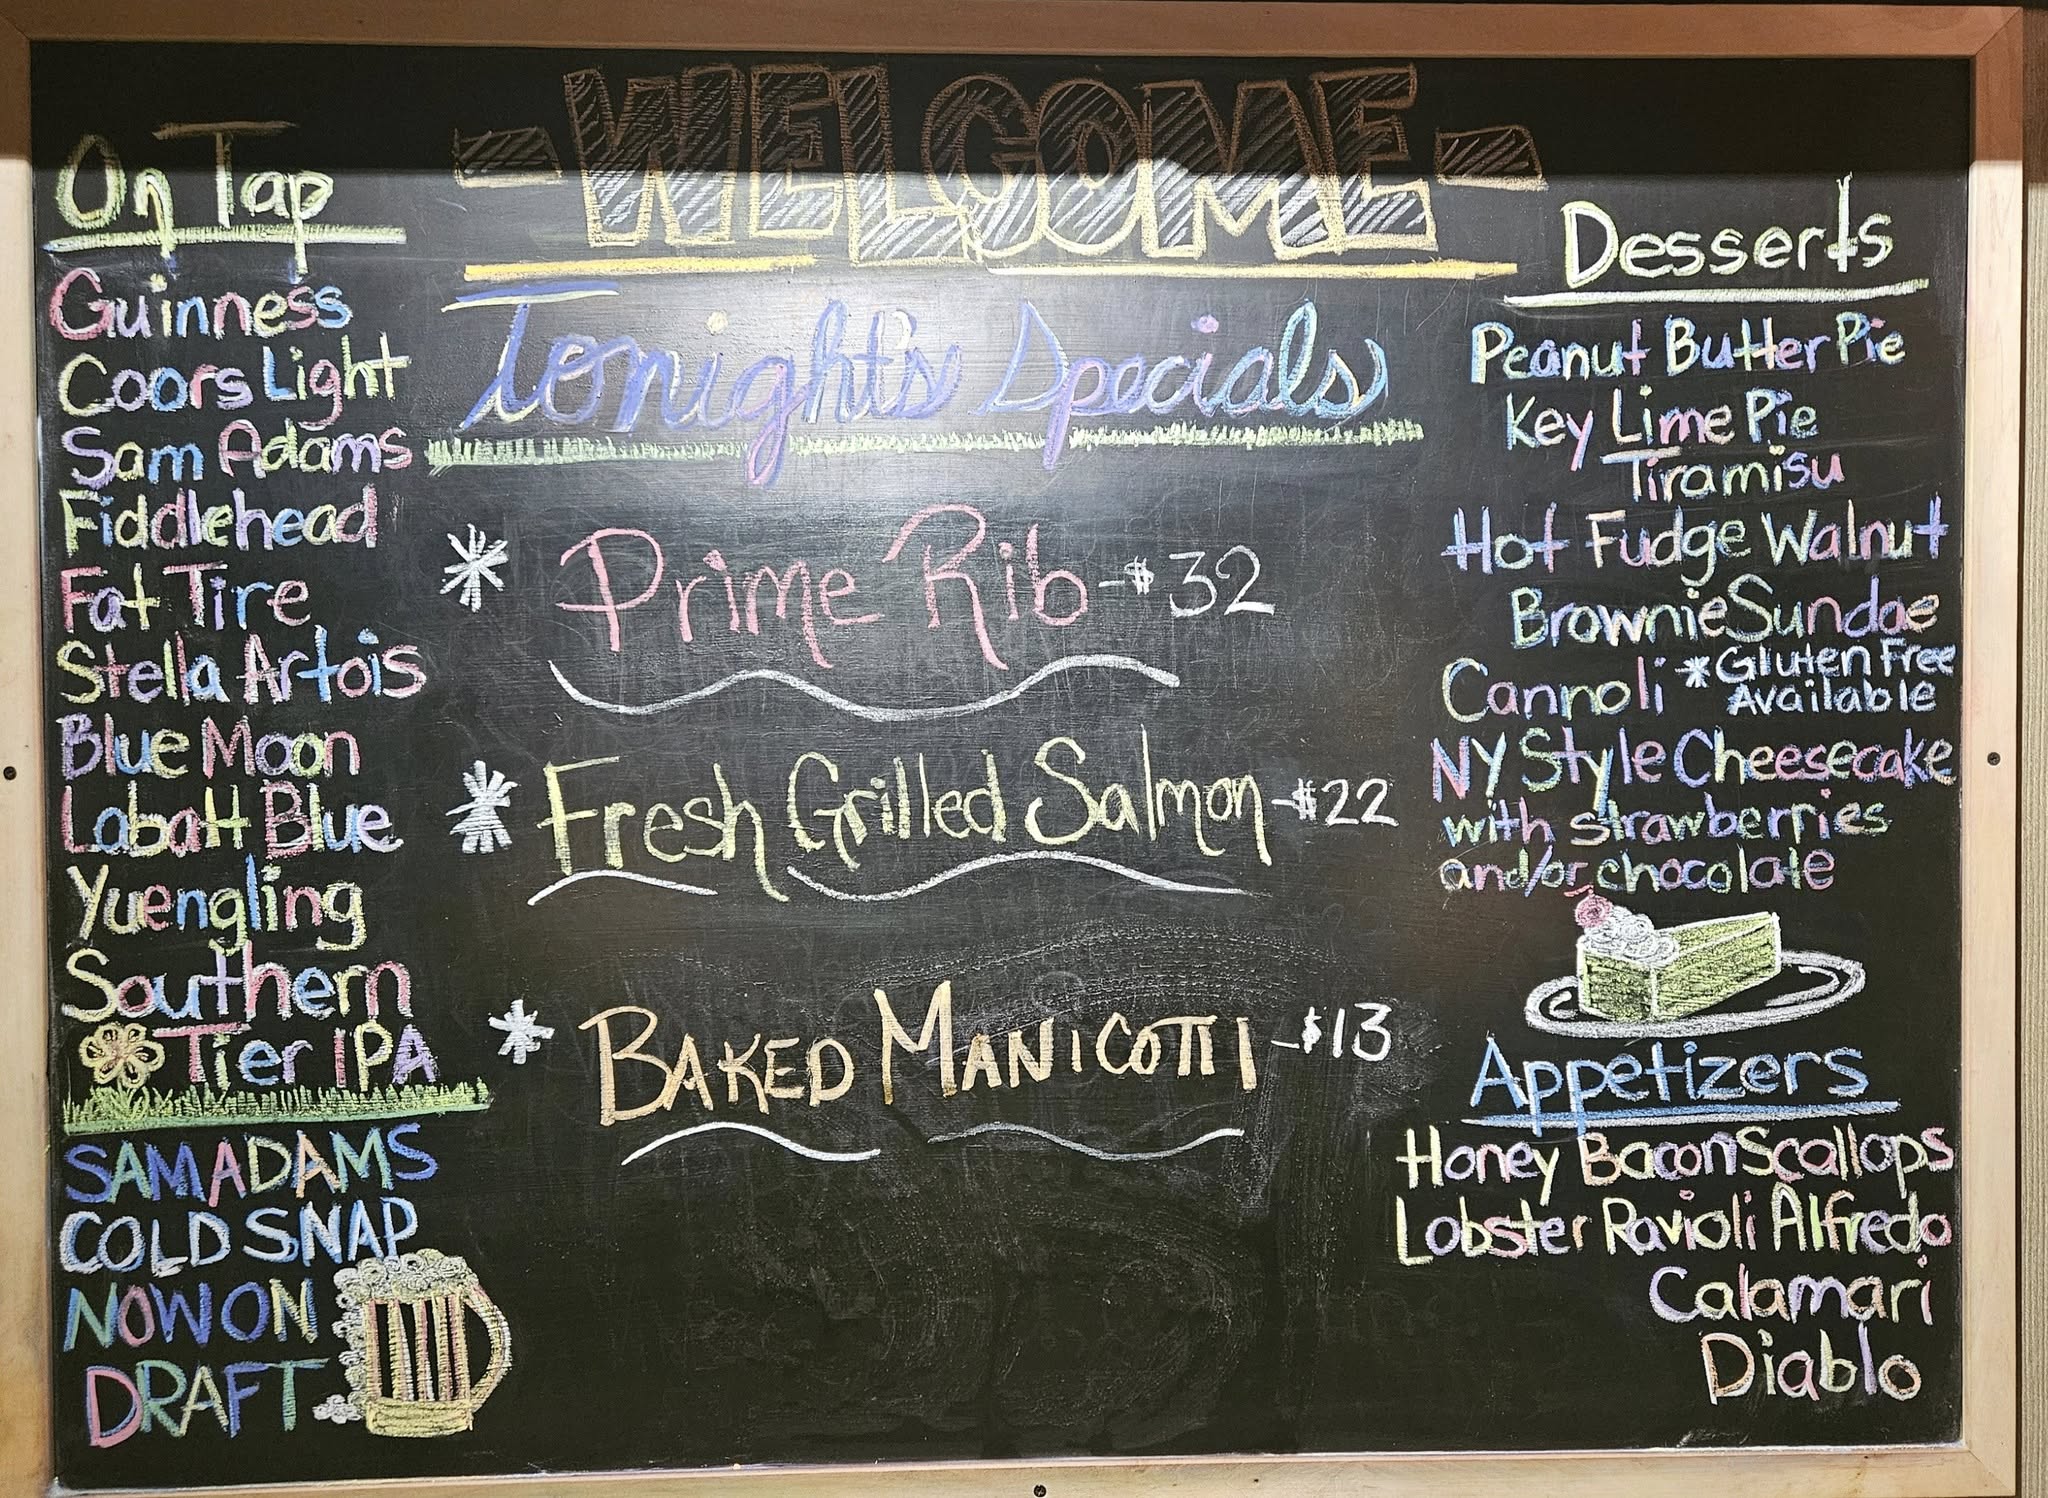 -WELCOME-
On Tap
Guinness
Coors Light
Sam Adams
Fiddlehead
Fat Tire
Stella Artois
Blue Moon
Labatt Blue
Yuengling
Southern
Tier IPA
SAM ADAMS
COLD SNAP
NOW ON
DRAFT
Tonight's Specials
* Prime Rib -$32
* Fresh Grilled Salmon -$22
* BAKED MANICOTTI -$13
Desserts
Peanut Butter Pie
Key Lime Pie
Tiramisu
Hot Fudge Walnut
Brownie Sundae
Cannoli *Gluten Free
Available
NY Style Cheesecake
with strawberries
and/or chocolate
Appetizers
Honey Bacon Scallops
Lobster Ravioli Alfredo
Calamari
Diablo